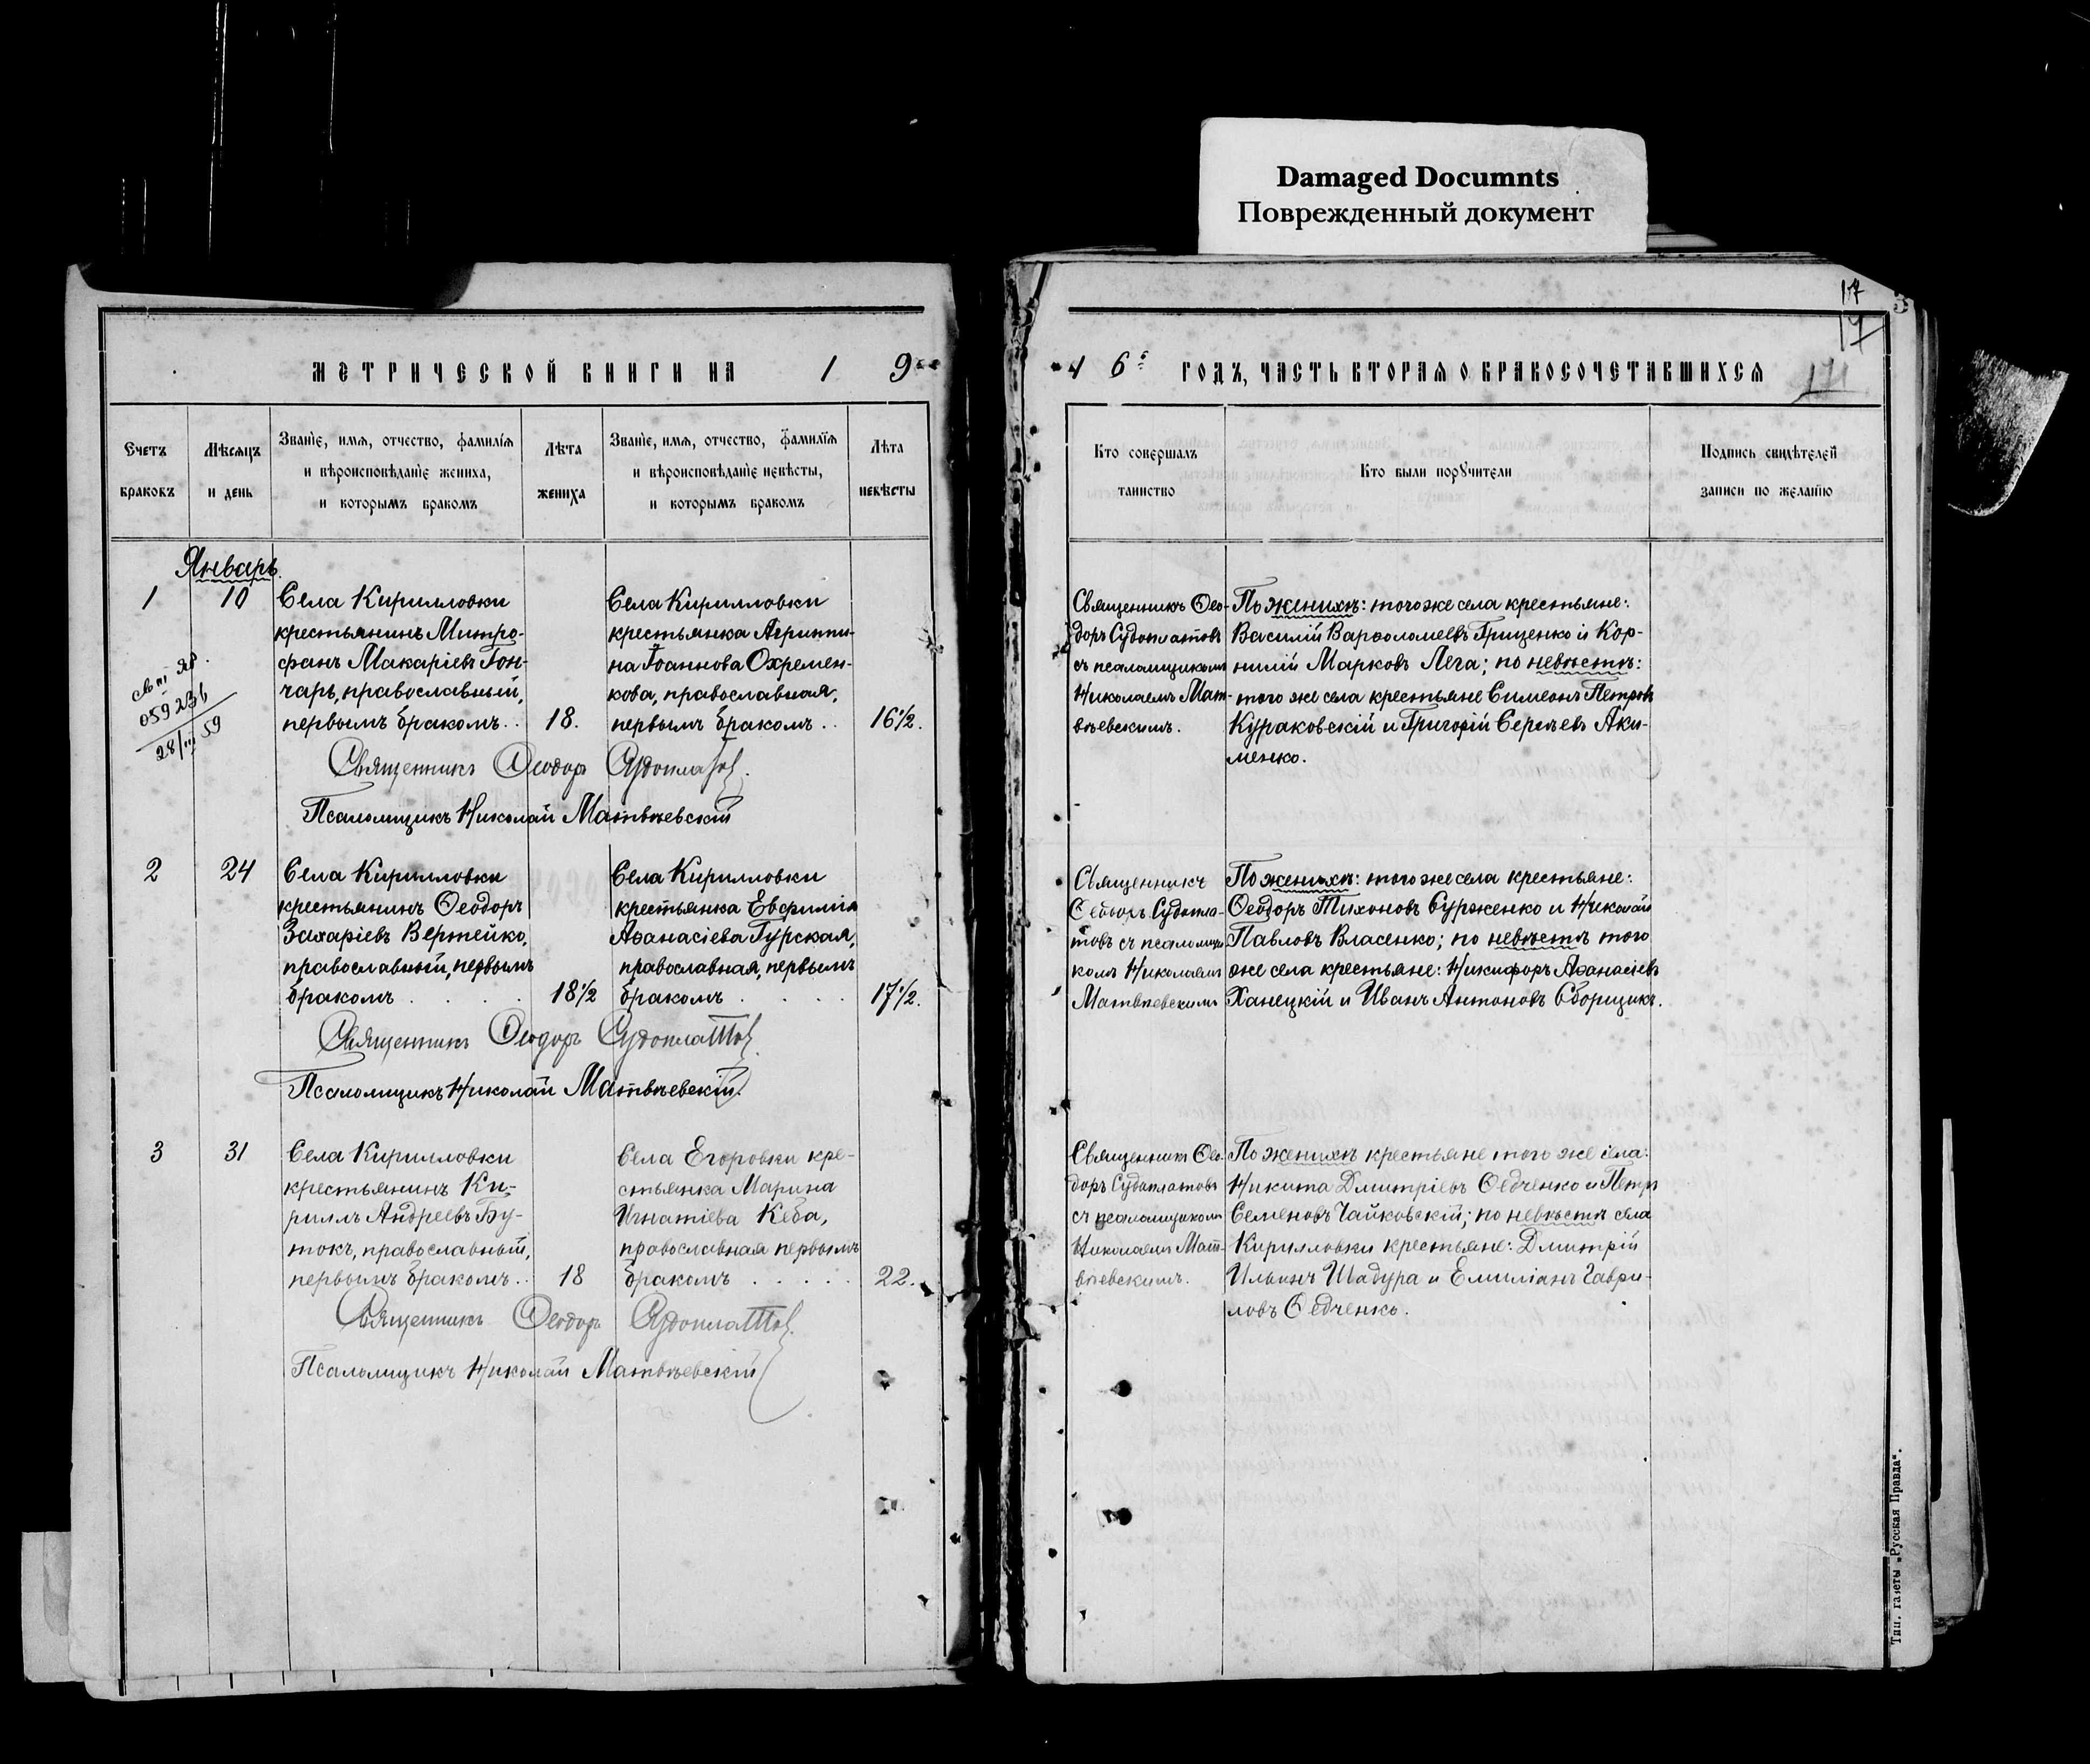 Damaged Documnts
Поврежденный документ
17
МЕТРИЧЕСКОЙ КНИГИ НА 1 9
1 6 ГОДЪ, ЧАСТЬ ВТОРАЯ О БРАКОСОЧЕТАВШИХСЯ
171
Счетъ
браковъ
Мѣсяцъ
и день
Званіе, имя, отчество, фамилія
и вѣроисповѣданіе жениха,
и которымъ бракомъ
Лѣта
жениха
Званіе, имя, отчество, фамилія
и вѣроисповѣданіе невѣсты,
и которымъ бракомъ
Лѣта
невѣсты
Кто совершалъ
таинство
Кто были поручители
Подпись свидѣтелей
записи по желанію
Январь
1
10
Села Кирилловки
крестьянинъ Митро-
фанъ Макаріевъ Гон-
чаръ, православный,
первымъ бракомъ..
18.
Села Кирилловки
крестьянка Агриппи-
на Іоаннова Охремен-
кова, православная,
первымъ бракомъ..
16½.
Священникъ Ѳео-
доръ Судоплатовъ
съ псаломщикомъ
Николаемъ Мат-
вѣевскимъ.
По женихѣ: того же села крестьяне:
Василій Варѳоломеевъ Грищенко и Кор-
нилій Марковъ Лега; по невѣстѣ:
того же села крестьяне Симеонъ Петровъ
Кураковскій и Григорій Сергѣевъ Аки-
менко.
059236
28/III 59
Священникъ Ѳеодоръ Судоплатов
Псаломщикъ Николай Матвѣевскій
2
24
Села Кирилловки
крестьянинъ Ѳеодоръ
Захаріевъ Вертейко,
православный, первымъ
бракомъ . . . .
18½
Села Кирилловки
крестьянка Евфимія
Аѳанасіева Гурская,
православная, первымъ
бракомъ . . . .
17½.
Священникъ
Ѳеодоръ Судопла-
товъ съ псаломщи
комъ Николаемъ
Матвѣевскимъ
По женихѣ: того же села крестьяне:
Ѳеодоръ Тихоновъ Сурженко и Николай
Павловъ Власенко; по невѣстѣ того
же села крестьяне: Никифоръ Аѳанасіевъ
Ханецкій и Иванъ Антоновъ Сборщикъ.
Священникъ Ѳеодоръ Судоплатов
Псаломщикъ Николай Матвѣевскій.
3
31
Села Кирилловки
крестьянинъ Ки-
риллъ Андреевъ Бу-
токъ, православный,
первымъ бракомъ..
18
Села Егоровки кре-
стьянка Марина
Игнатіева Кеба,
православная первымъ
бракомъ . . . . .
22.
Священникъ Ѳео-
доръ Судоплатовъ
съ псаломщикомъ
Николаемъ Мат-
вѣевскимъ.
По женихѣ крестьяне того же села:
Никита Дмитріевъ Ѳедченко и Петръ
Семеновъ Чайковскій; по невѣстѣ села
Кирилловки крестьяне: Дмитрій
Ильинъ Шадура и Емиліанъ Гаври-
ловъ Ѳедченко.
Священникъ Ѳеодоръ Судоплатов
Псаломщикъ Николай Матвѣевскій
Тип. газеты „Русская Правда“.